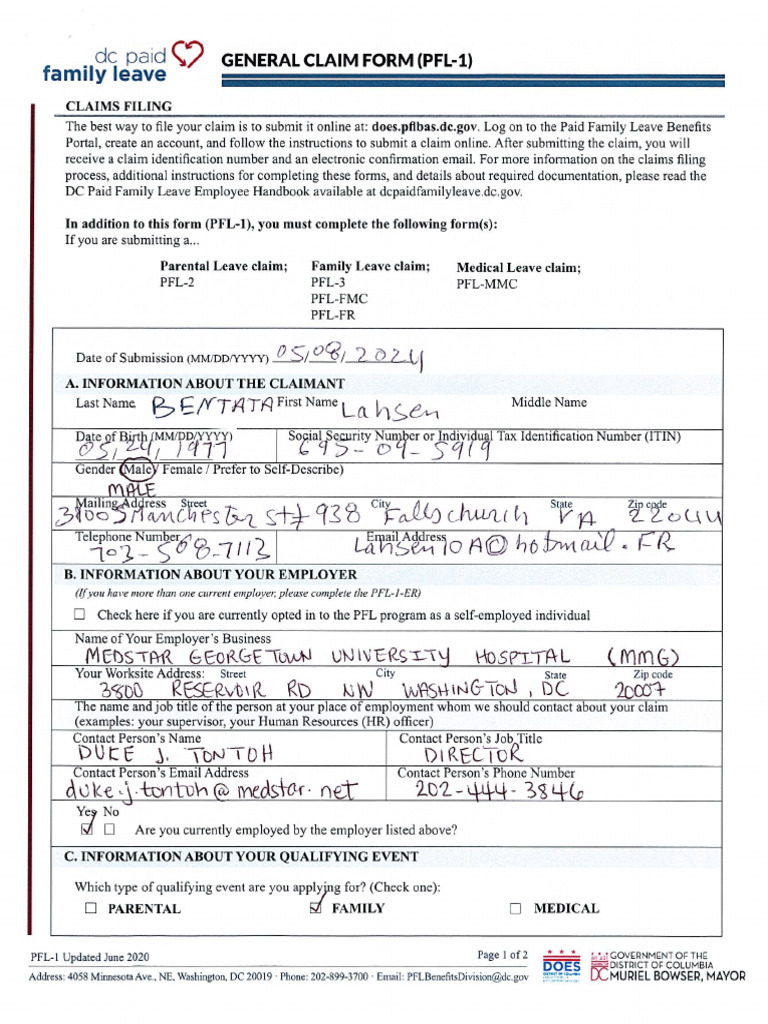 dc paid
family leave
GENERAL CLAIM FORM (PFL-1)
CLAIMS FILING
The best way to file your claim is to submit it online at: does.pflbas.dc.gov. Log on to the Paid Family Leave Benefits
Portal, create an account, and follow the instructions to submit a claim online. After submitting the claim, you will
receive a claim identification number and an electronic confirmation email. For more information on the claims filing
process, additional instructions for completing these forms, and details about required documentation, please read the
DC Paid Family Leave Employee Handbook available at dcpaidfamilyleave.dc.gov.
In addition to this form (PFL-1), you must complete the following form(s):
If you are submitting a...
Parental Leave claim; Family Leave claim; Medical Leave claim;
PFL-2 PFL-3 PFL-MMC
PFL-FMC
PFL-FR
Date of Submission (MM/DD/YYYY) 05/08/2024
A. INFORMATION ABOUT THE CLAIMANT
Last Name BENTATA First Name Lahsen Middle Name
Date of Birth (MM/DD/YYYY) Social Security Number or Individual Tax Identification Number (ITIN)
05/24/1977 695-09-5919
Gender (Male / Female / Prefer to Self-Describe)
MALE
Mailing Address Street City State Zip code
3100 S Manchester St # 938 Falls church VA 22044
Telephone Number Email Address
703-508-7113 Lahsen10A@hotmail.FR
B. INFORMATION ABOUT YOUR EMPLOYER
(If you have more than one current employer, please complete the PFL-1-ER)
☐ Check here if you are currently opted in to the PFL program as a self-employed individual
Name of Your Employer's Business
MEDSTAR GEORGETOWN UNIVERSITY HOSPITAL (MMG)
Your Worksite Address: Street City State Zip code
3800 RESERVOIR RD NW WASHINGTON, DC 20007
The name and job title of the person at your place of employment whom we should contact about your claim
(examples: your supervisor, your Human Resources (HR) officer)
Contact Person's Name Contact Person's Job Title
DUKE J. TONTOH DIRECTOR
Contact Person's Email Address Contact Person's Phone Number
duke.j.tontoh@medstar.net 202-444-3846
Yes No
☑ ☐ Are you currently employed by the employer listed above?
C. INFORMATION ABOUT YOUR QUALIFYING EVENT
Which type of qualifying event are you applying for? (Check one):
☐ PARENTAL ☑ FAMILY ☐ MEDICAL
PFL-1 Updated June 2020 Page 1 of 2
Address: 4058 Minnesota Ave., NE, Washington, DC 20019 · Phone: 202-899-3700 · Email: PFLBenefitsDivision@dc.gov
DOES
GOVERNMENT OF THE
DISTRICT OF COLUMBIA
DC MURIEL BOWSER, MAYOR